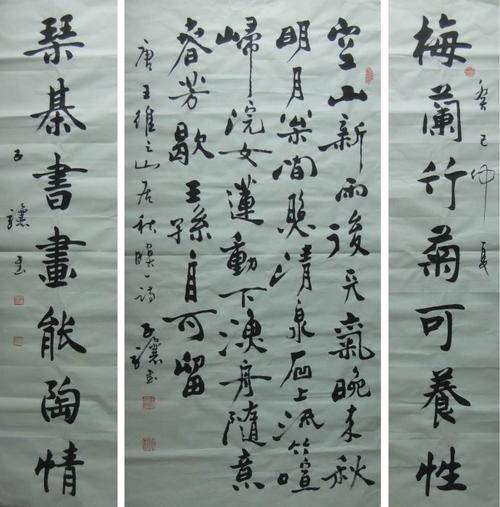 梅蘭竹菊可養性
癸巳仲夏
空山新雨後天氣晚来秋
明月松间照清泉石上流竹喧
歸浣女蓮動下漁舟隨意
春芳歇王孫自可留
唐王維之山居秋暝一詩 子驤书
琴棊書畫能陶情
子驤书